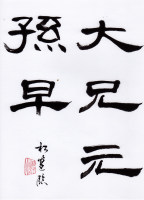 大兄元
孫早